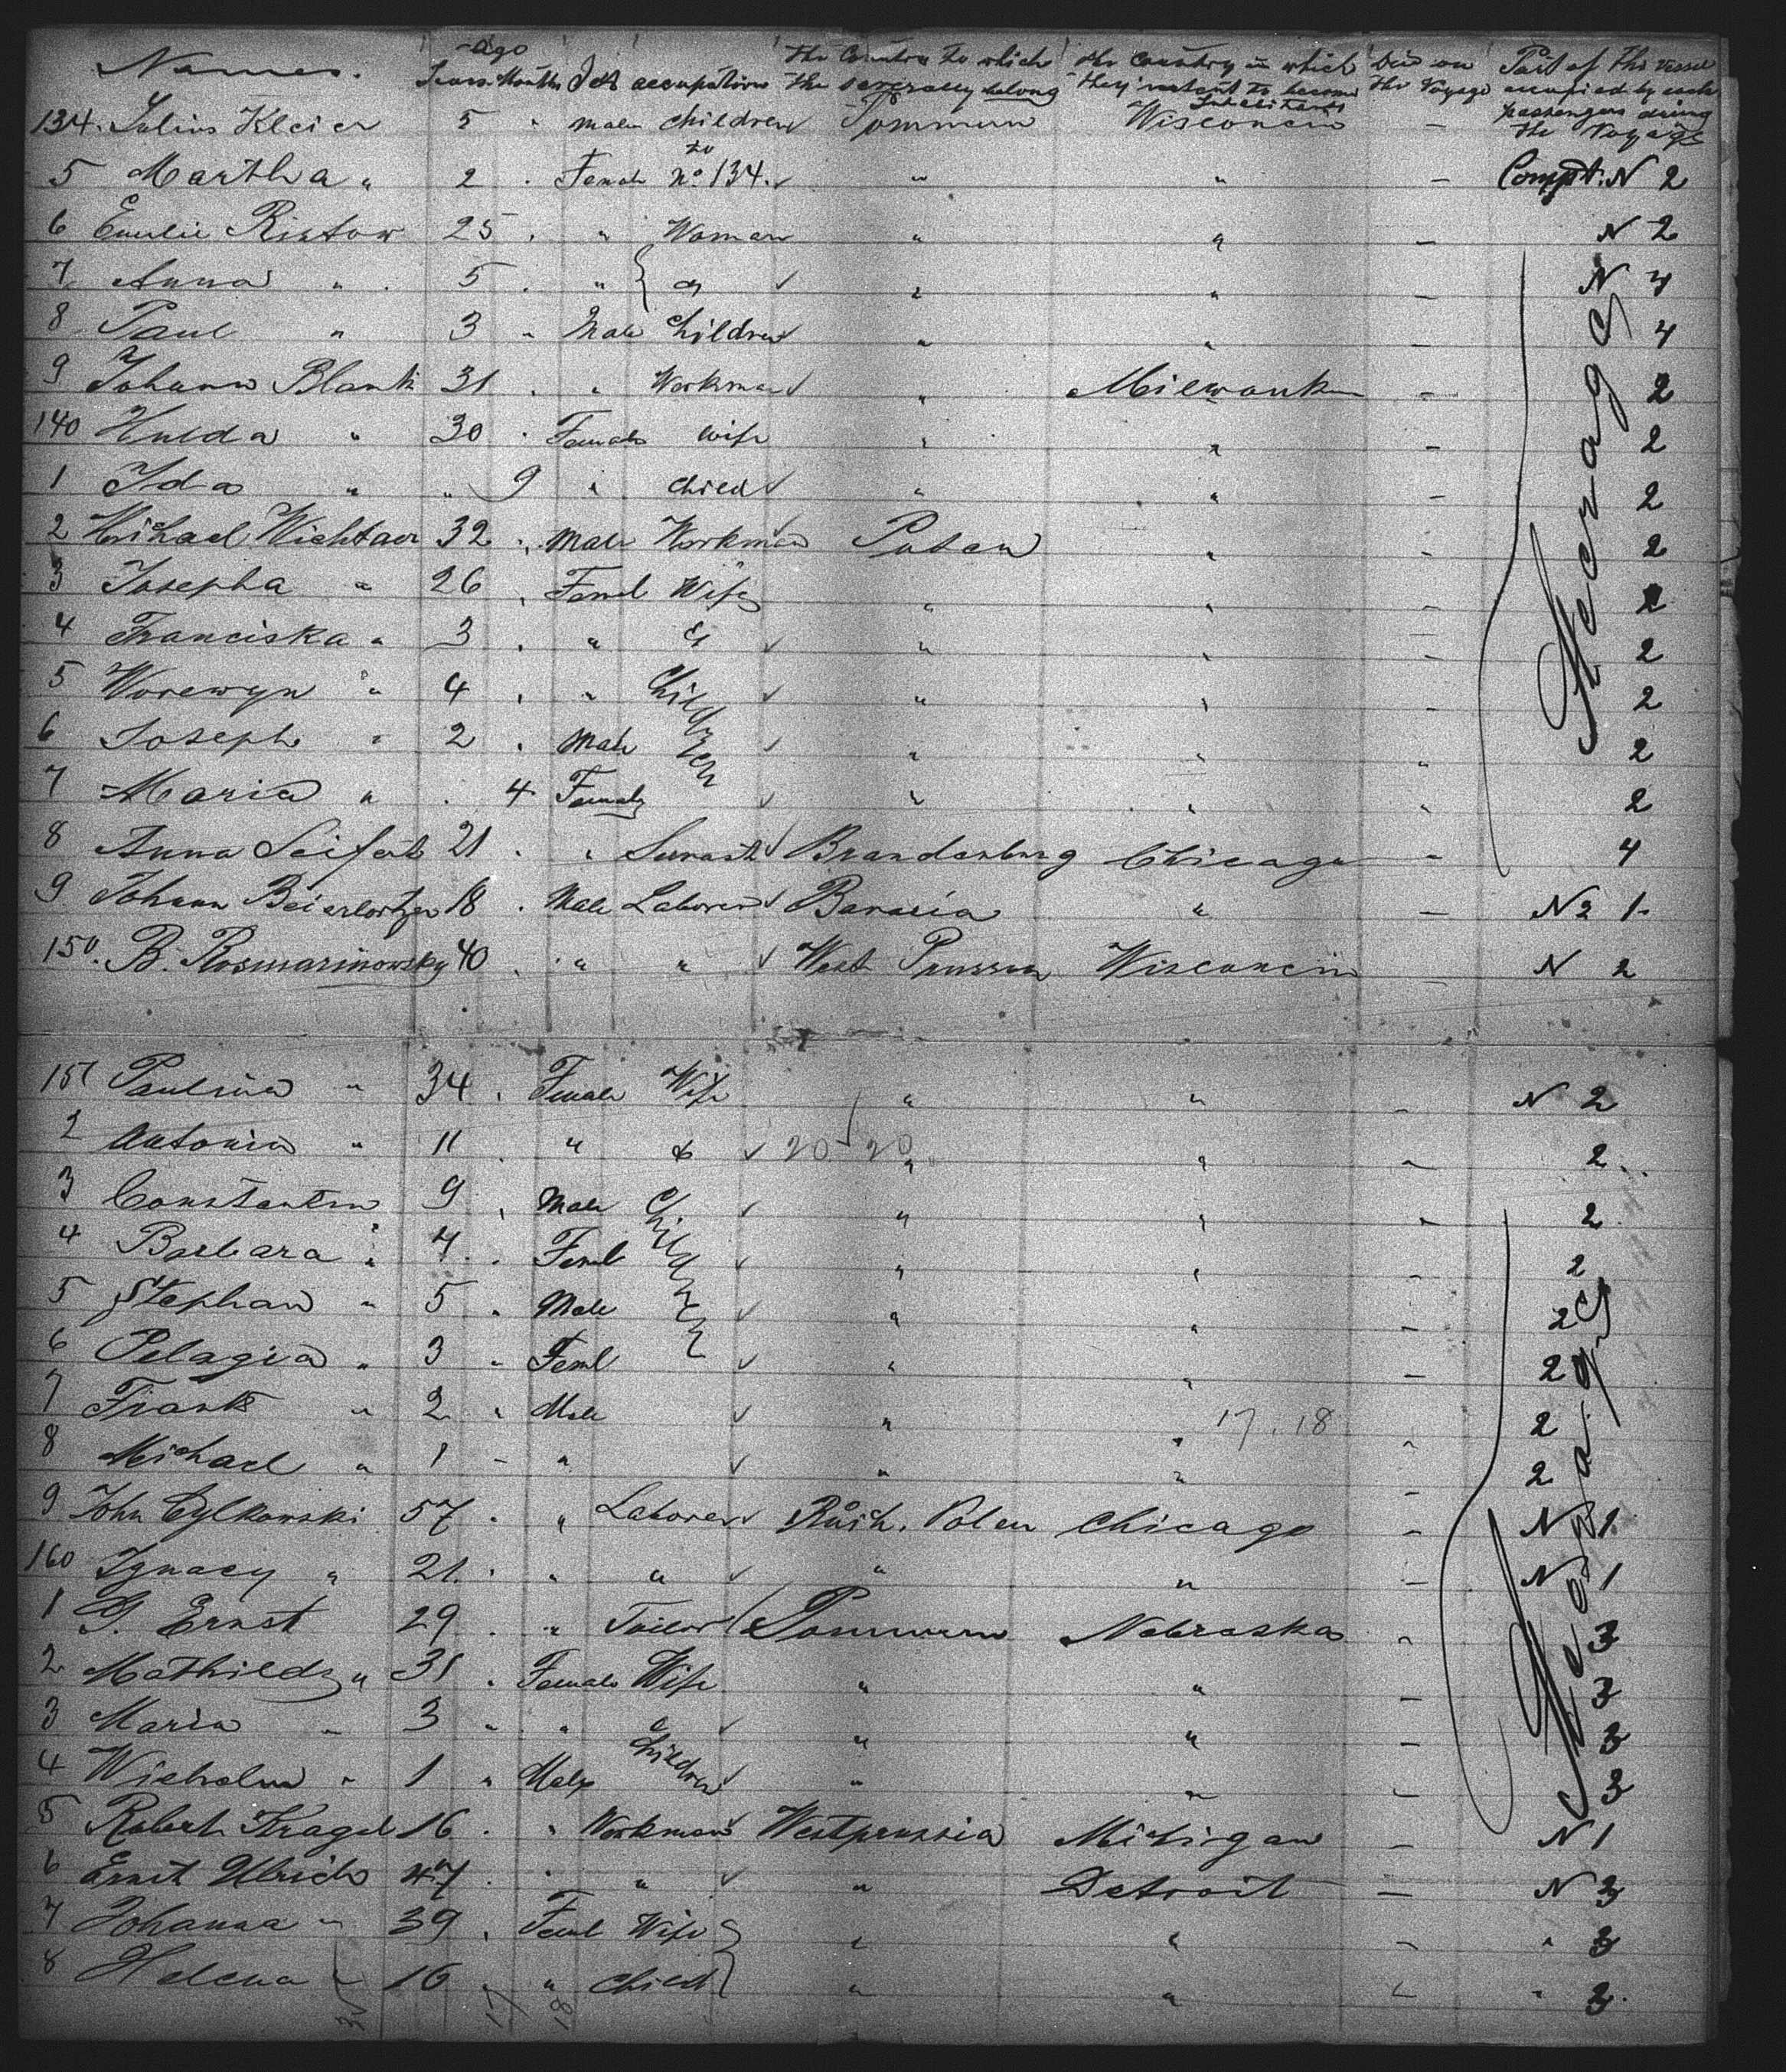 Names. Age Years Months Sex occupation the Country to which the severally belong the Country in which they intent to become Inhabitants Died on the Voyage Part of the vessel occupied by each passengers during the Voyage
134. Julius Kleier 5 " male children Pommern Wisconsin —
5 Martha " 2 . Female to No 134. " " — Compt. N 2
6 Emilie Ristow 25 . " Woman " " — N 2
7 Anna " . 5 . " " " — N 4
8 Paul " 3 " Male Children " " — 4
9 Johann Blank 31 . " Workman " Milwauke — 2
140 Hulda " 30 . Female wife " " — 2
1 Ida " " 9 " child " " — 2
2 Michael Wichtaer 32 " Male Workman Posen " — 2
3 Josepha " 26 . Femal Wife " " — 2
4 Franciska " 3 . " " " — 2
5 Worewyn " 4 . " Children " " — 2
6 Joseph " 2 . Male " " " 2
7 Maria " . 4 Female " " " 2
8 Anna Seifert 21 . " Servant Brandenburg Chicago — 4
9 Johann Beierlortzer 18 . Male Laborer Bavaria " — N 2 1.
150. B. Rosmarinowsky 40 . " " West Prussia Wisconsin — N 2
Steerage
151 Paulina " 34 . Female Wife " " — N 2
2 Antonia " 11 . " & 20 20 " " — 2
3 Constantin 9 . Male Children " " — 2
4 Barbara " 7 . Feml " " — 2
5 Stephan " 5 . Male " " — 2
6 Pelagia " 3 " Feml " " — 2
7 Frank " 2 " Male " " 17. 18 " 2
8 Michael " 1 — " " " — 2
9 John Cylkowski 57 . " Laborer Rush. Polen Chicago — N 1
160 Ignacy " 21. . " " " " — N 1
1 G. Ernst 29 . " Tailor Pommern Nebraska " 3
2 Mathilde " 31 . Female Wife " " — 3
3 Maria " 3 " " " " — 3
4 Wilhelm " 1 " Male Children " " — 3
5 Robert Kragel 16 . " Workman Westprussia Michigan — N 1
6 Ernst Ulrich 47 . " " " Detroit — N 3
7 Johanna " 39 . Feml Wife " " — " 3
8 Helena " 16 . " Child " " — " 3.
Steerage
17 18